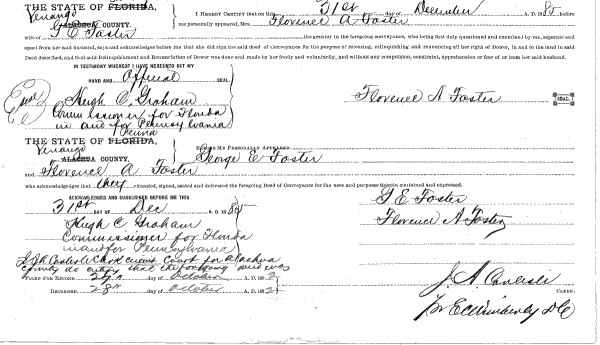 THE STATE OF FLORIDA,
Venango
ALACHUA COUNTY.
I HEREBY CERTIFY that on this 31st day of December A. D. 1885 before
me personally appeared, Mrs. Florence A Foster
Wife of G E Foster the grantor in the foregoing conveyance, who being first duly questioned and examined by me, separate and
apart from her said husband, says and acknowledges before me that she did sign the said deed of Conveyance for the purpose of releasing, relinquishing and renouncing all her right of Dower, in and to the land in said
Deed described, and that said Relinquishment and Renunciation of Dower was done and made by her freely and voluntarily, and without any compulsion, constraint, apprehension or fear of or from her said husband.
IN TESTIMONY WHEREOF I HAVE HEREUNTO SET MY
HAND AND Official SEAL
Hugh C. Graham
Commissioner for Florida
in and for Pennsylvania
Florence A Foster SEAL.
Penna
THE STATE OF FLORIDA,
Venango
ALACHUA COUNTY.
BEFORE ME PERSONALLY APPEARED George E Foster
and Florence A Foster
who acknowledged that they executed, signed, sealed and delivered the foregoing Deed of Conveyance for the uses and purposes therein contained and expressed.
ACKNOWLEDGED AND SUBSCRIBED BEFORE ME THIS
31st DAY OF Dec A. D. 1885
G E Foster
Florence A Foster
Hugh C Graham
Commissioner for Florida
in and for Pennsylvania
I J A Carlisle Clerk Circuit Court for Alachua
County do certify that the foregoing
FILED FOR RECORD day of October A. D. 188
RECORDED 28th day of October A. D. 188
J. A. Carlisle
CLERK.
Per E C Wimberly D C